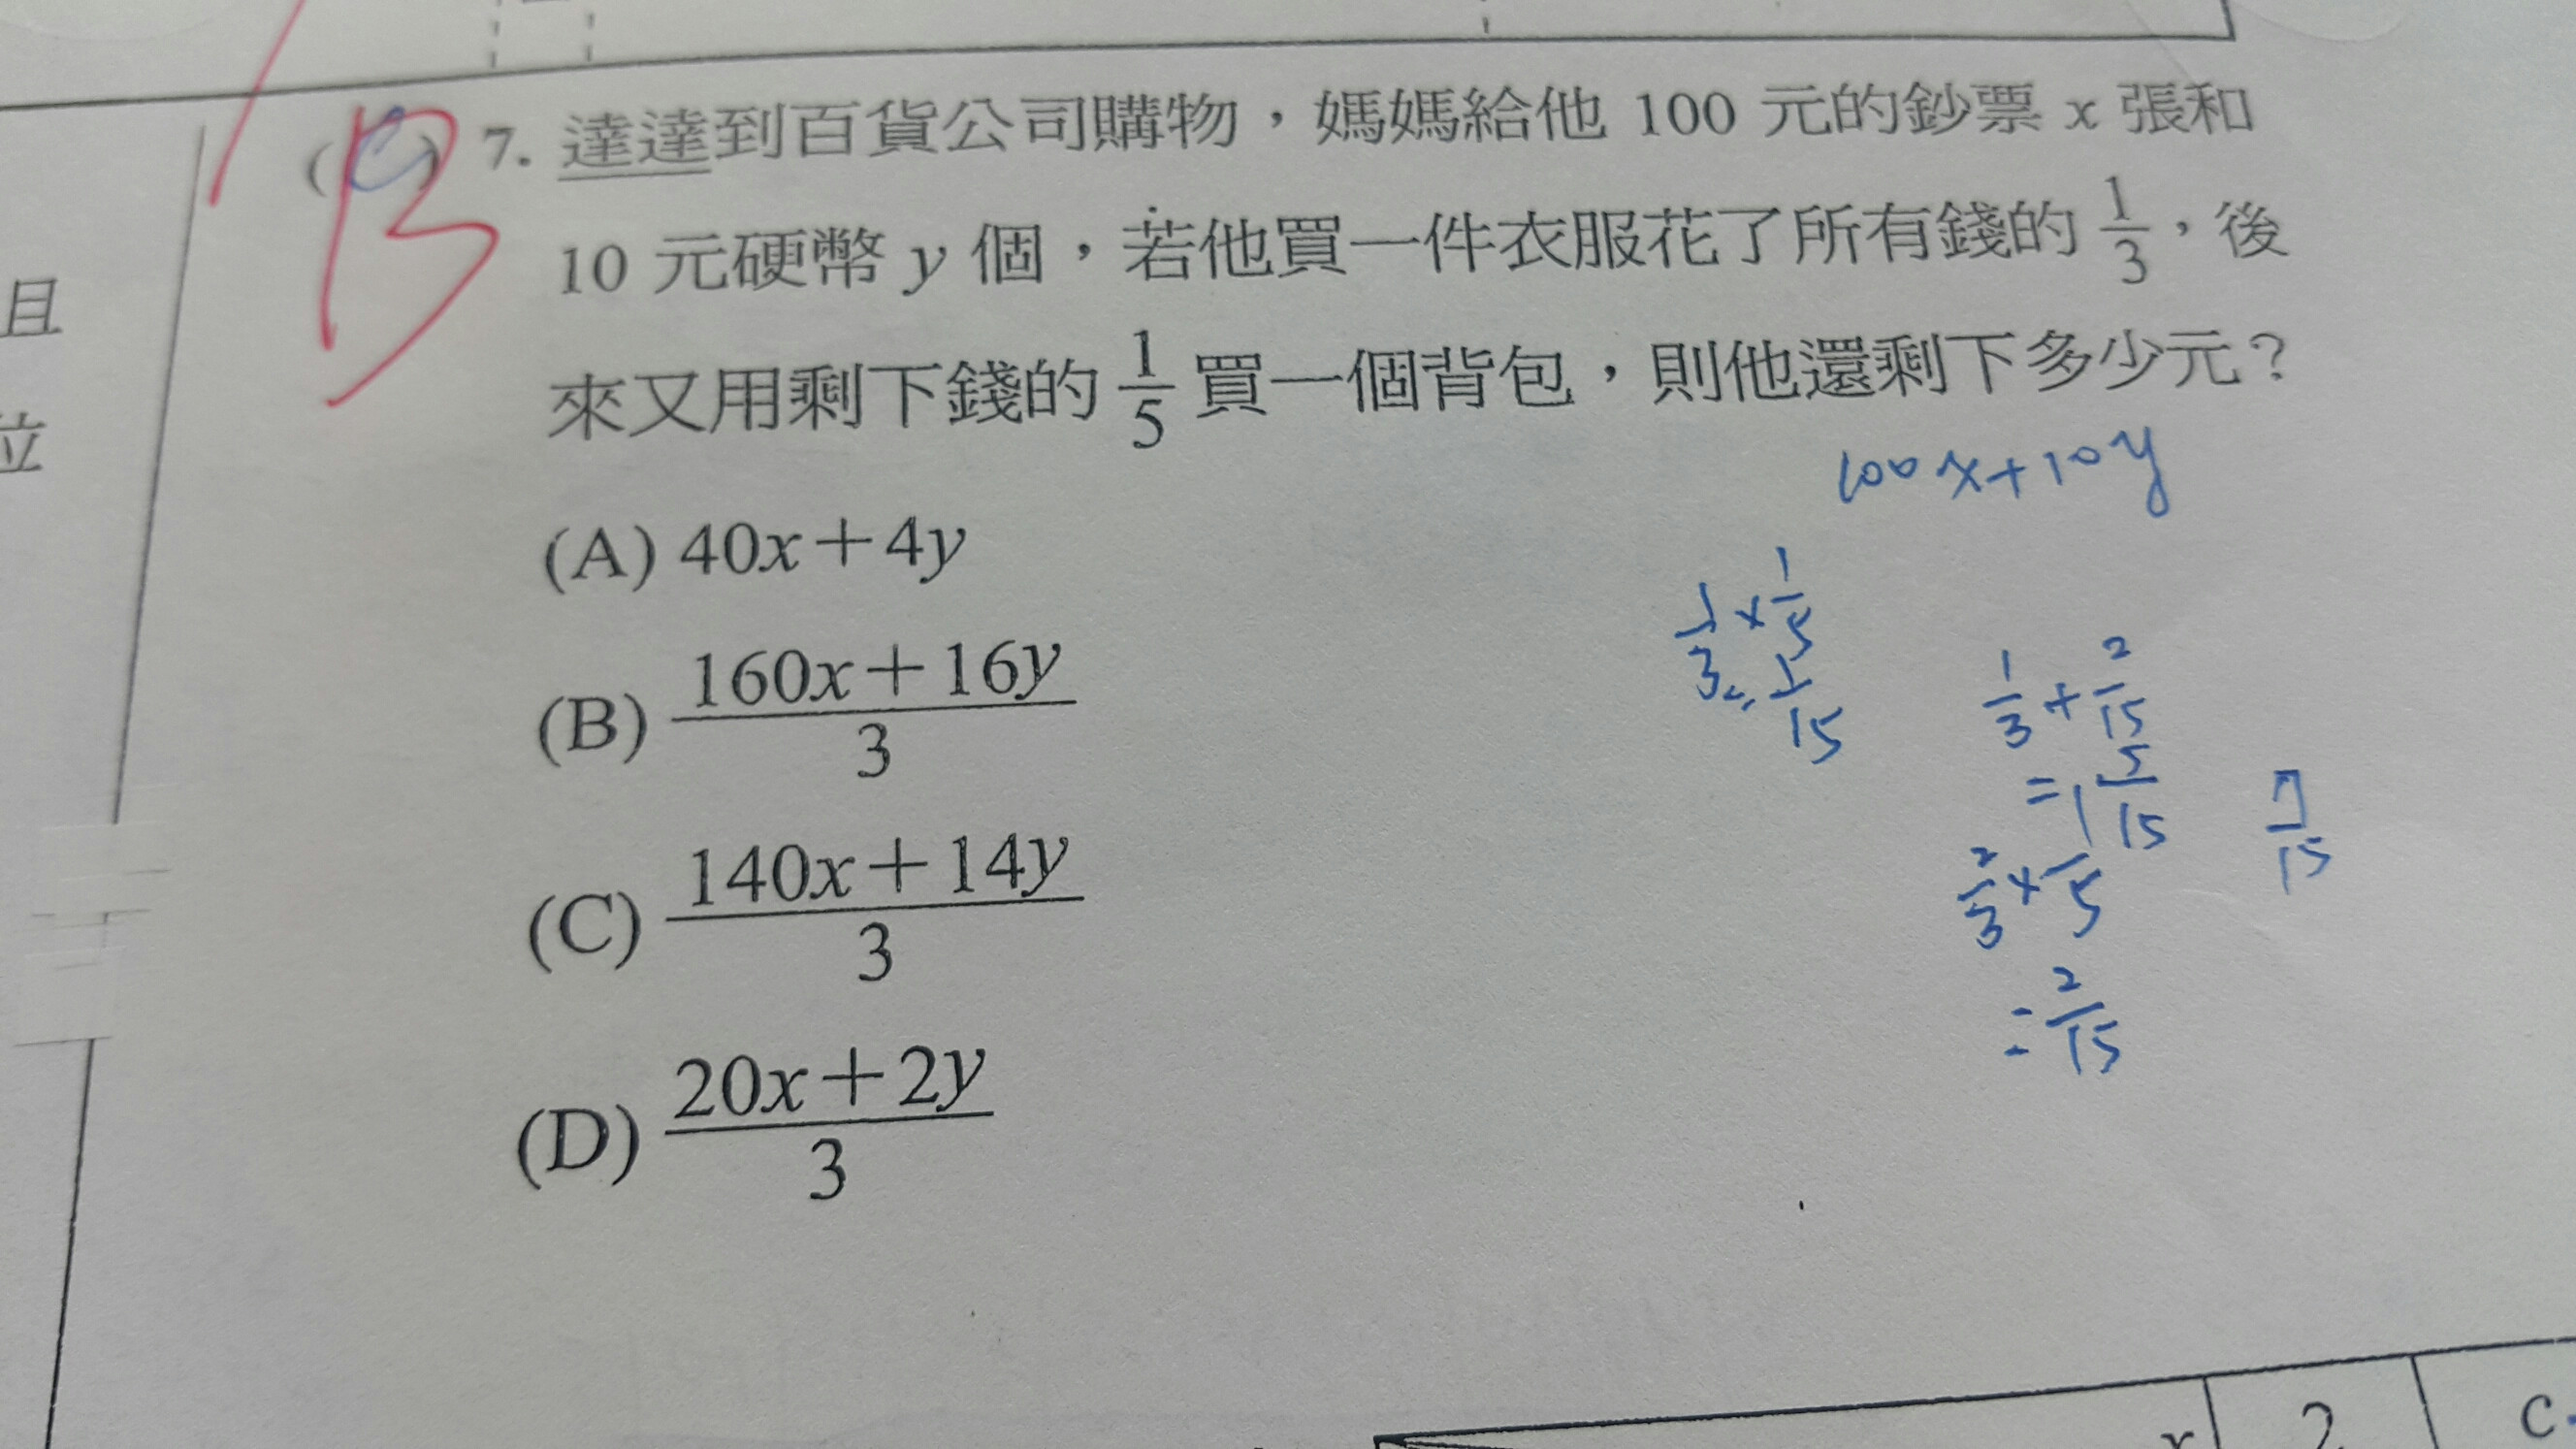 (C) B 7. 達達到百貨公司購物，媽媽給他 100 元的鈔票 x 張和
10 元硬幣 y 個，若他買一件衣服花了所有錢的 1/3，後
來又用剩下錢的 1/5 買一個背包，則他還剩下多少元？
100x+10y
(A) 40x+4y
(B) 160x+16y/3
(C) 140x+14y/3
(D) 20x+2y/3
1/3 × 1/5
= 1/15
1/3 + 2/15
2/3 × 1/5
= 2/15
7/15
且
位
x 2 C